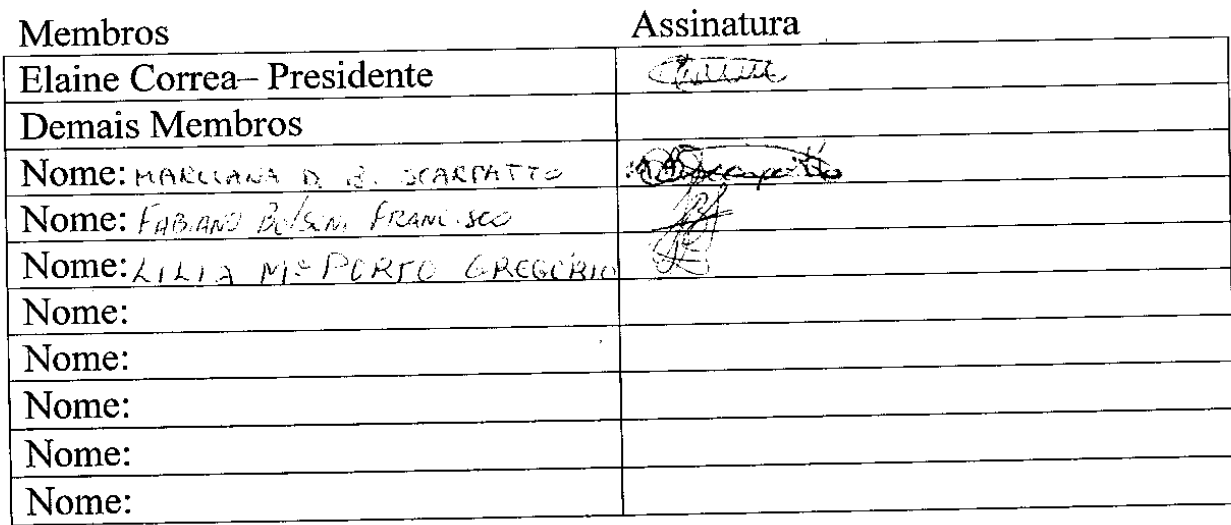 Membros Assinatura
Elaine Correa– Presidente
Demais Membros
Nome: MARCIANA D. B. SCARPATTO
Nome: FABIANO FRANCISCO
Nome: LILIA Mª PORTO GREGÓRIO
Nome:
Nome:
Nome:
Nome:
Nome: